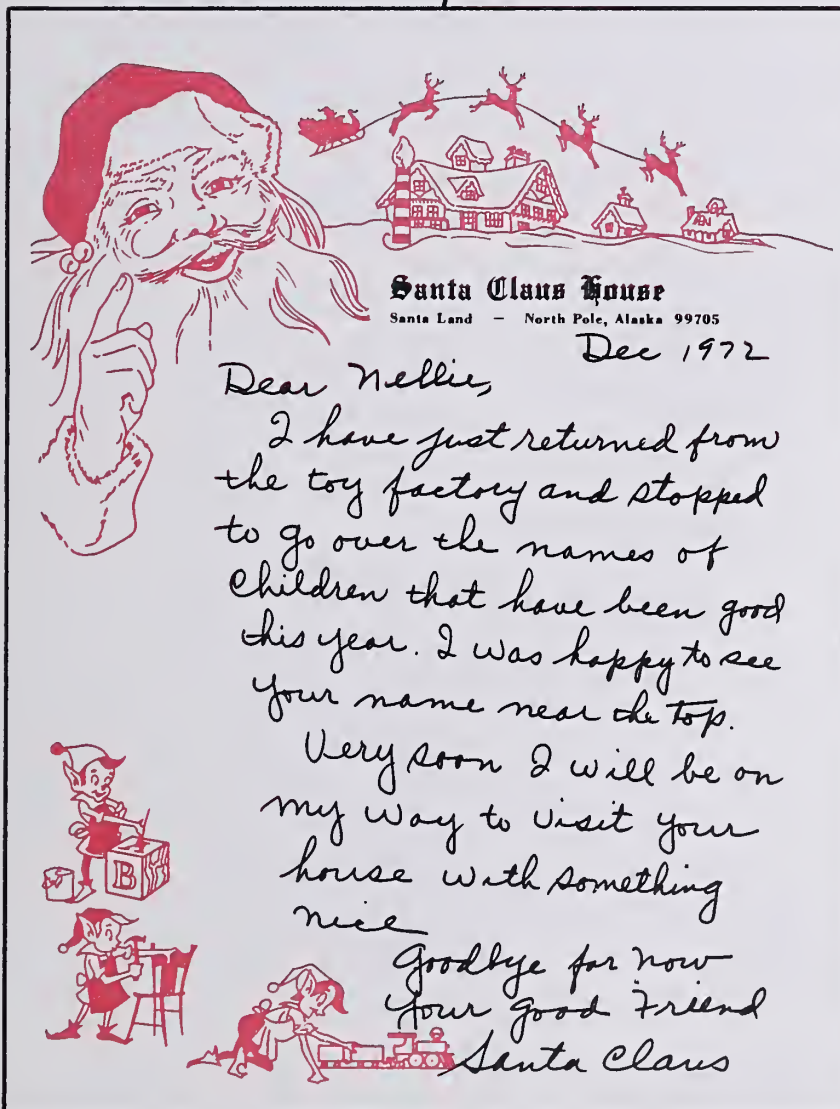 Santa Claus House
Santa Land – North Pole, Alaska 99705
Dec 1972
Dear Nellie,
I have just returned from
the toy factory and stopped
to go over the names of
Children that have been good
this year. I was happy to see
your name near the top.
Very soon I will be on
my way to visit your
house with something
nice
Goodbye for now
your good Friend
Santa Claus
B